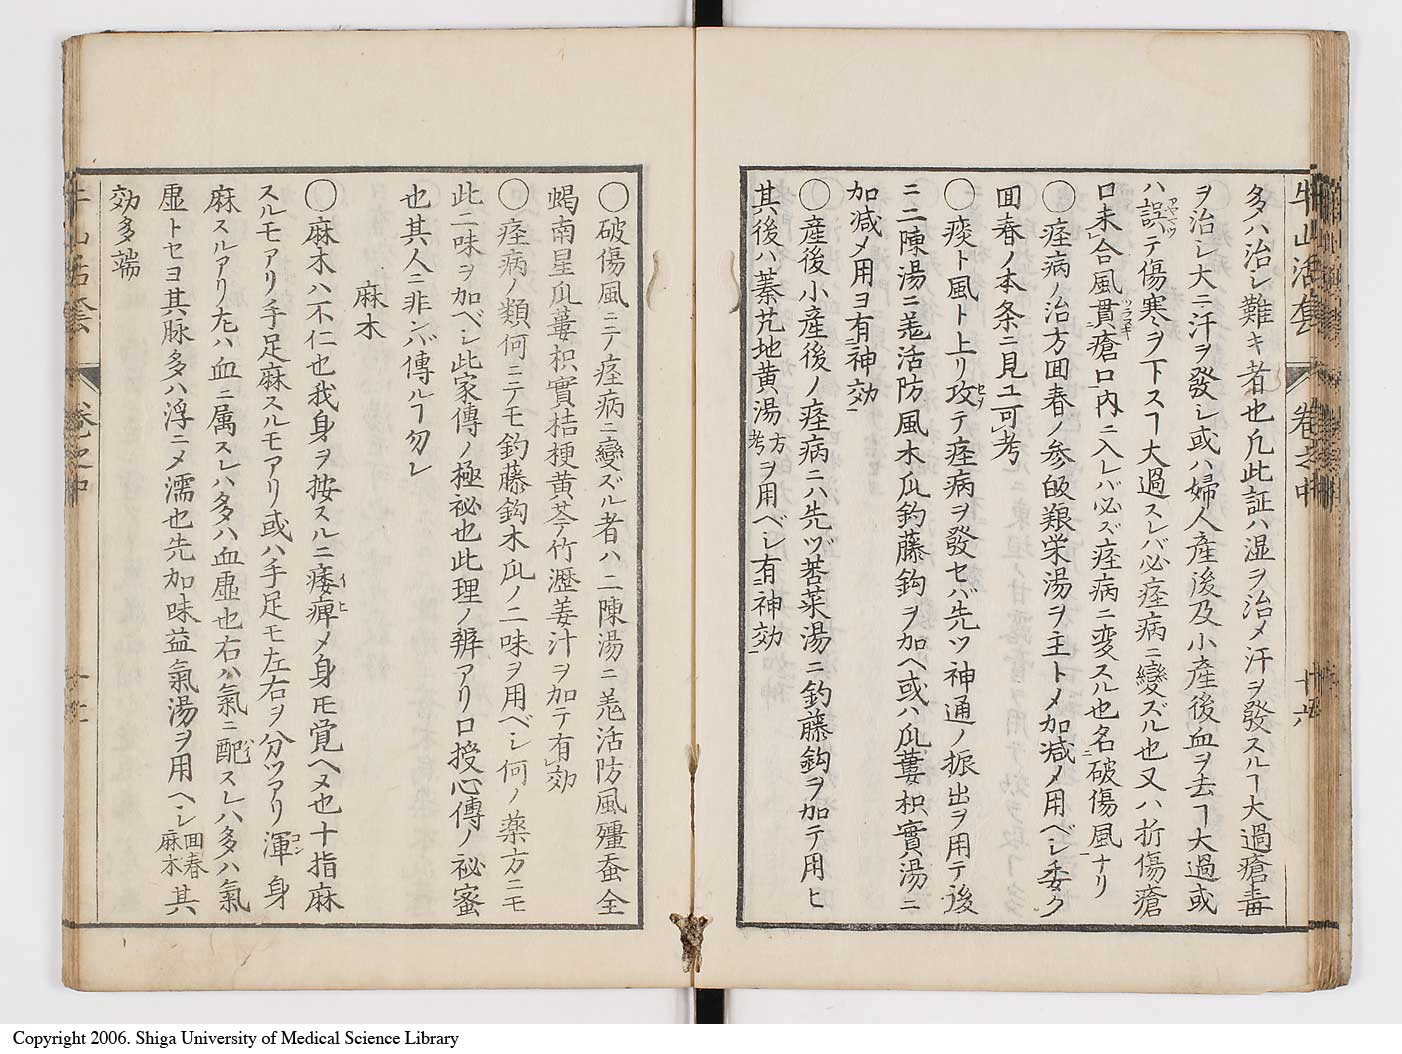 牛山活套 卷之中 十六
多ハ治レ難キ者也凡此証ハ湿ヲ治メ汗ヲ發スルヿ大過瘡毒
ヲ治シ大ニ汗ヲ發シ或ハ婦人産後及小産後血ヲ去ヿ大過或
ハ誤テ傷寒ヲ下スヿ大過スレバ必痓病ニ變ズル也又ハ折傷瘡
口未合風貫瘡口内ニ入レバ必ズ痓病ニ変スル也名破傷風ナリ
〇痓病ノ治方回春ノ参皈養栄湯ヲ主トメ加減メ用ベシ委ク
回春ノ本条ニ見ユ可考
〇痰ト風ト上リ攻テ痓病ヲ發セバ先ツ神通ノ振出ヲ用テ後
ニ二陳湯ニ羌活防風木瓜釣藤鈎ヲ加ヘ或ハ瓜蔞枳實湯ニ
加減メ用ヨ有神効
〇産後小産後ノ痓病ニハ先ヅ䓀菜湯ニ釣藤鈎ヲ加テ用ヒ
其後ハ蓁芃地黄湯方考ヲ用ベシ有神効
〇破傷風ニテ痓病ニ變ズル者ハ二陳湯ニ羌活防風殭蚕全
蝎南星瓜蔞枳實桔梗黄芩竹瀝姜汁ヲ加テ有効
〇痓病ノ類何ニテモ釣藤鈎木瓜ノ二味ヲ用ベシ何ノ薬方ニモ
此二味ヲ加ベシ此家傳ノ極祕也此理ノ辨アリ口授心傳ノ祕蜜
也其人ニ非ンバ傳ルヿ勿レ
麻木
〇麻木ハ不仁也我身ヲ按スルニ痿痺メ身モ覚ヘヌ也十指麻
スルモアリ手足麻スルモアリ或ハ手足モ左右ヲ分ツアリ渾身
麻スルアリ左ハ血ニ属スレハ多ハ血虚也右ハ氣ニ配スレハ多ハ氣
虚トセヨ其脉多ハ浮ニメ濡也先加味益氣湯ヲ用ヘシ回春麻木其
効多端
牛山活套 卷之中